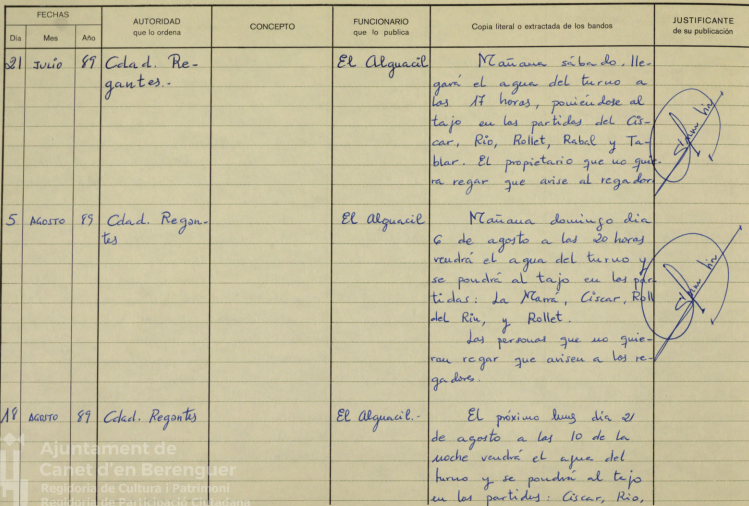 FECHAS
Día Mes Año
AUTORIDAD
que lo ordena
CONCEPTO
FUNCIONARIO
que lo publica
Copia literal o extractada de los bandos
JUSTIFICANTE
de su publicación
21 JULIO 89 Cdad. Re-
gantes.-
El Alguacil
Mañana sábado, lle-
gará el agua del turno a
las 17 horas, poniéndose al
tajo en las partidas del Cis-
car, Rio, Rollet, Rabal y Ta-
blar. El propietario que no quie-
ra regar que avise al regador
5 AGOSTO 89 Cdad. Regan-
tes
El Alguacil
Mañana domingo dia
6 de agosto a las 20 horas
vendrá el agua del turno y
se pondrá al tajo en las par-
tidas: La Marrá, Ciscar, Roll
del Riu, y Rollet.
Las personas que no quie-
ran regar que avisen a los re-
gadores.
18 AGOSTO 89 Cdad. Regantes
El Alguacil.-
El próximo lunes dia 21
de agosto a las 10 de la
noche vendrá el agua del
turno y se pondrá al tajo
en las partidas: Ciscar, Rio,
Ajuntament de
Canet d'en Berenguer
Regidoria de Cultura i Patrimoni
Regidoria de Participació Ciutadana